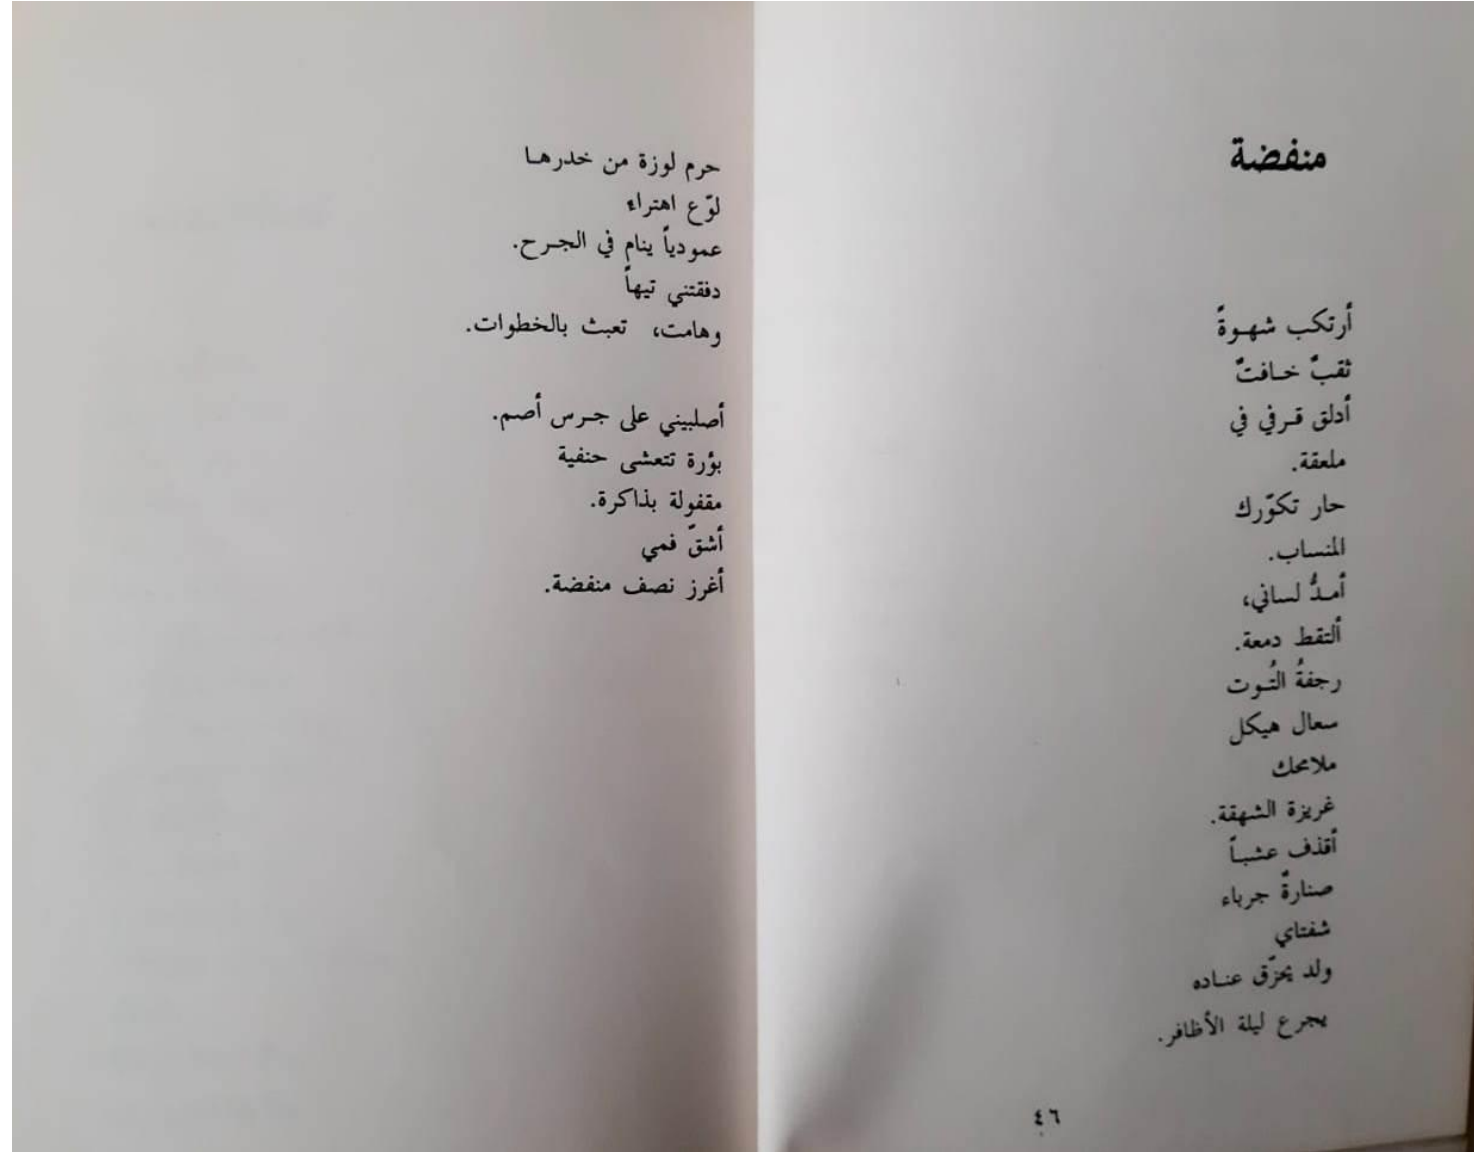 منفضة
أرتكب شهـوةً
ثقبٌ خـافتٌ
أدلق قـرفي في
ملعقة.
حار تكوّرك
المنساب.
أمـدُّ لساني،
ألتقط دمعة.
رجفةُ التُـوت
سعال هيكل
ملامحك
غريزة الشهقة.
أقذف عشبـاً
صنارةٌ جرباء
شفتاي
ولد يحزّق عنـاده
يجرع ليلة الأظافر.
٤٦
حرم لوزة من خدرهـا
لوّع اهتراء
عمودياً ينام في الجـرح.
دفقتني تيهاً
وهامت، تعبث بالخطوات.
أصلبيني على جـرس أصم.
بؤرة تتعشى حنفية
مقفولة بذاكرة.
أشقّ فمي
أغرز نصف منفضة.